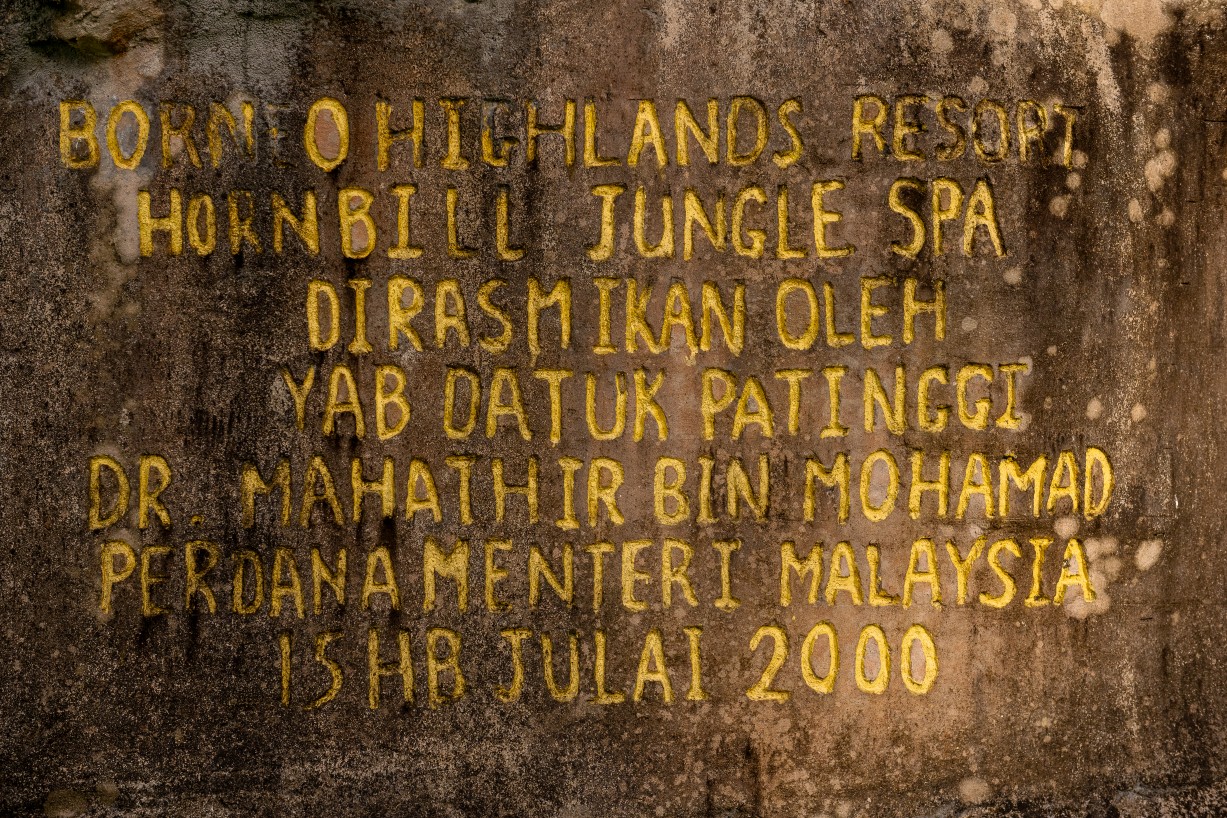 BORNEO HIGHLANDS RESORT
HORNBILL JUNGLE SPA
DIRASMIKAN OLEH
YAB DATUK PATINGGI
DR. MAHATHIR BIN MOHAMAD
PERDANA MENTERI MALAYSIA
15 HB JULAI 2000